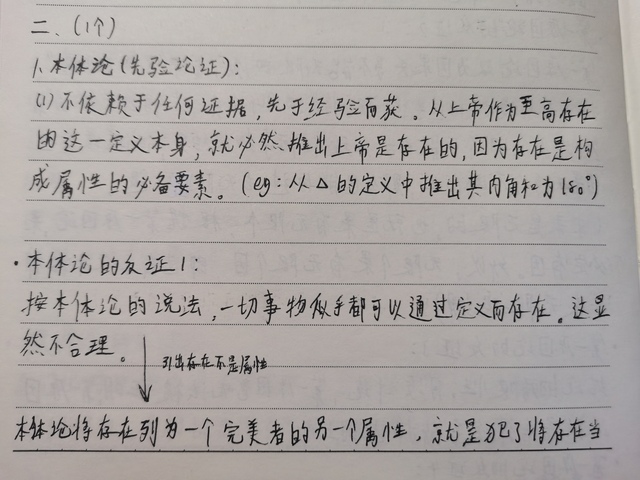 二、(1个)
1.本体论(先验论证):
(1)不依赖于任何证据,先于经验而获。从上帝作为至高存在
的这一定义本身,就必然推出上帝是存在的,因为存在是构
成属性的必备要素。(eg:从△的定义中推出其内角和为180°)
·本体论的反证1:
按本体论的说法,一切事物似乎都可以通过定义而存在。这显
然不合理。
引出存在不是属性
本体论将存在列为一个完美者的另一个属性,就是犯了将存在当